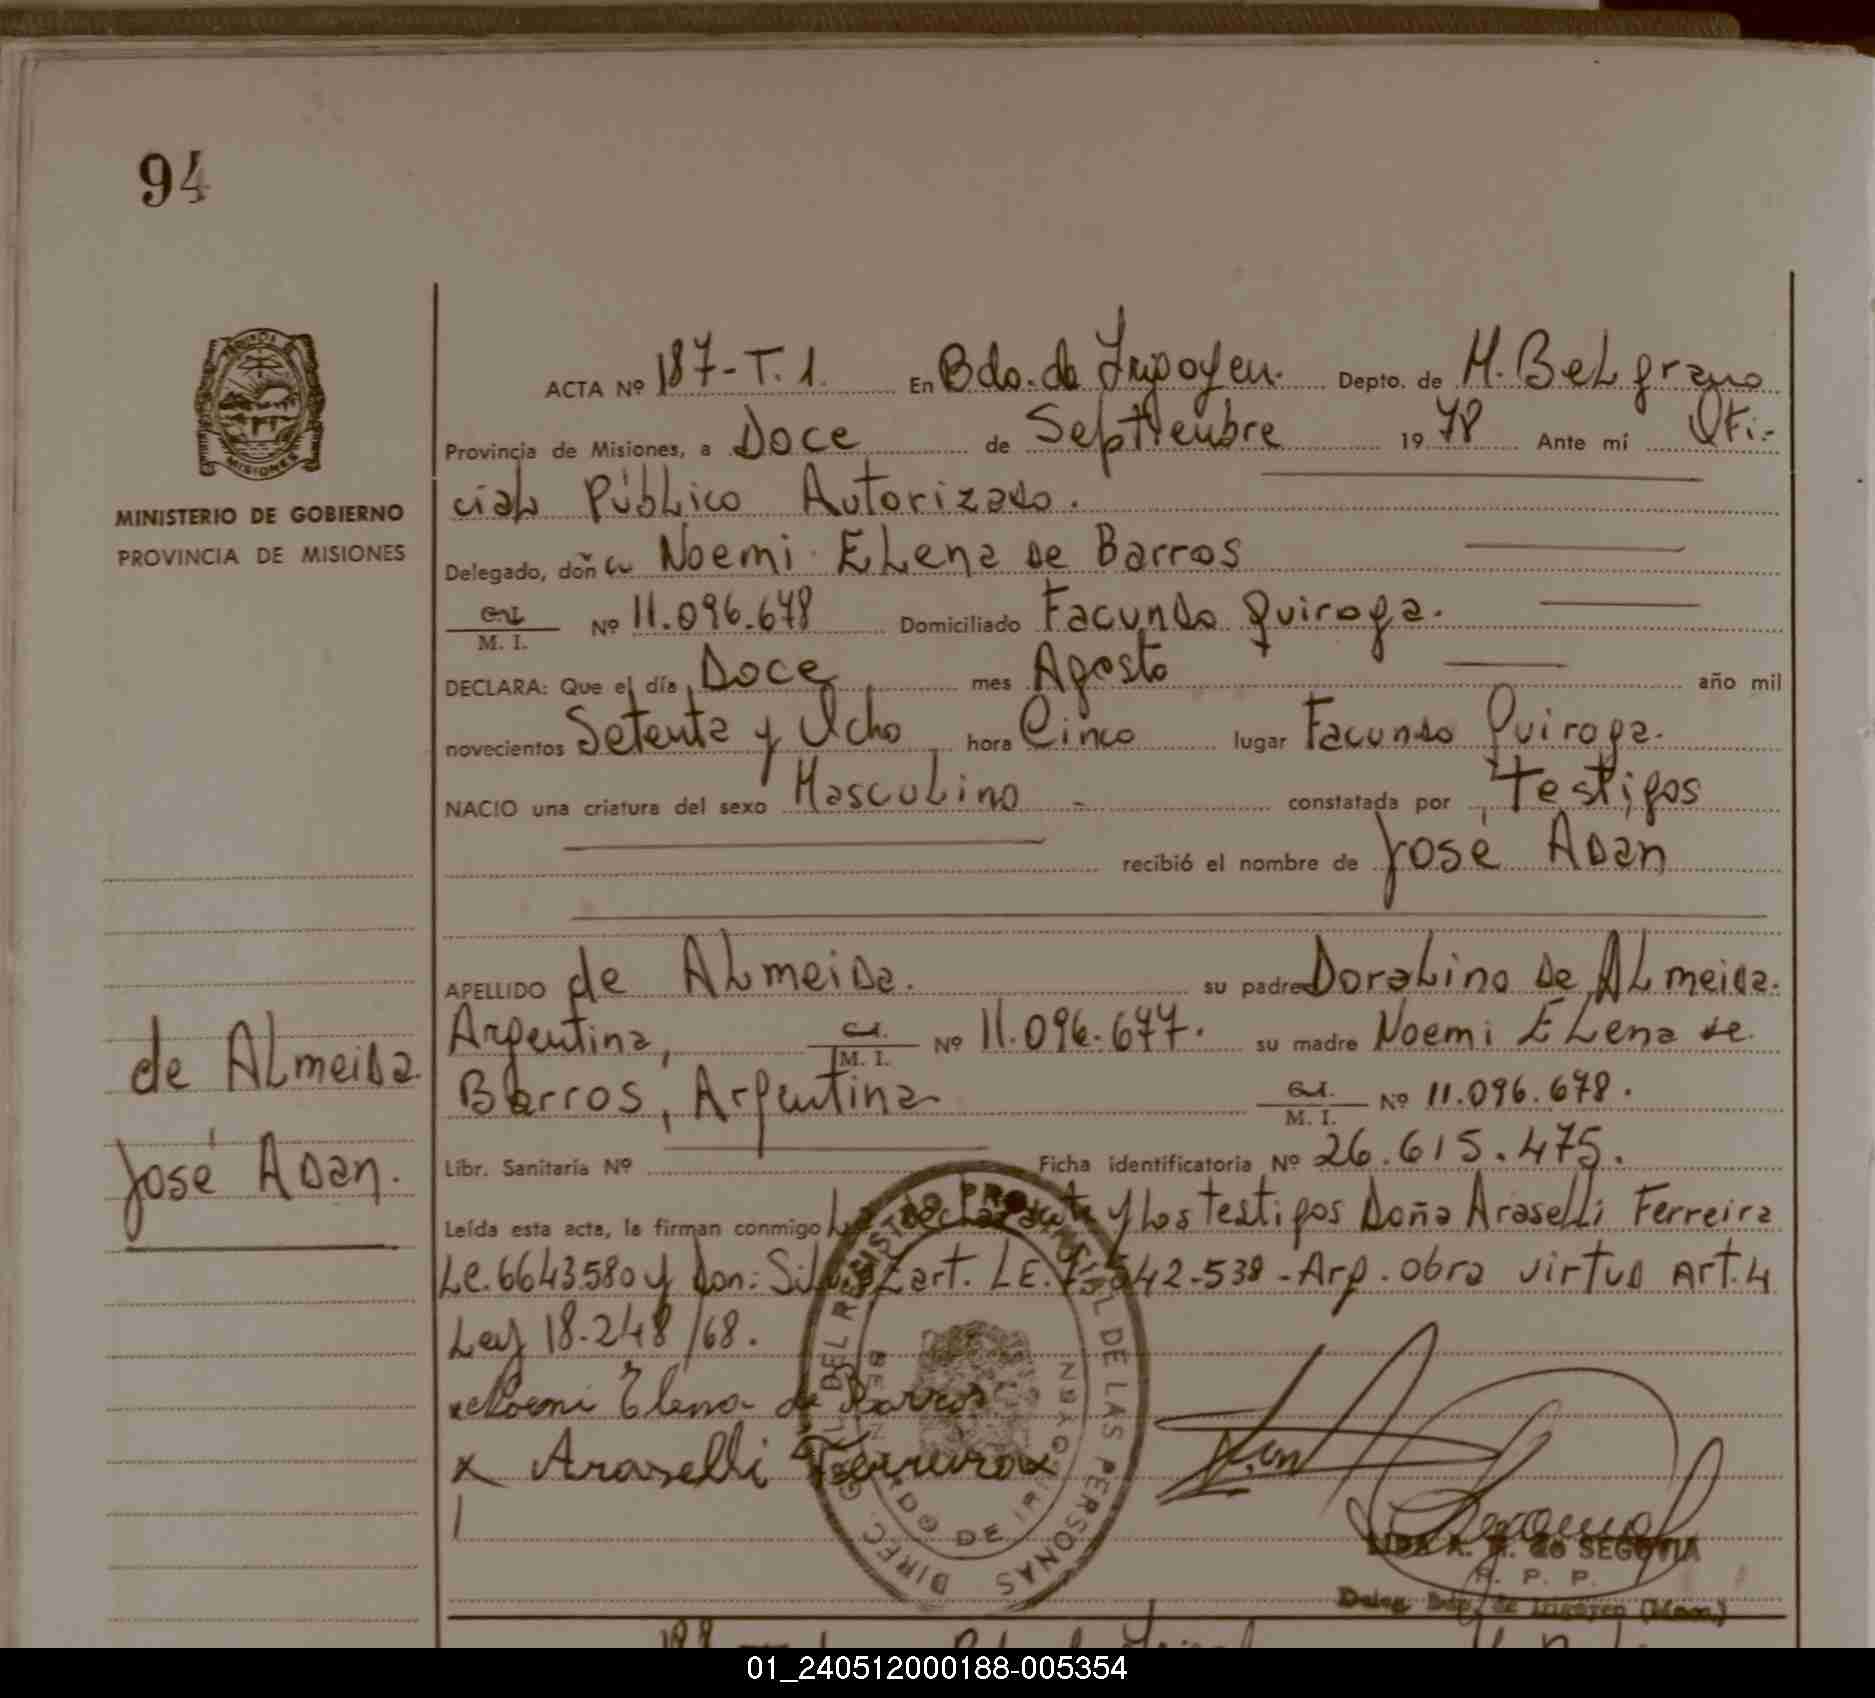 94
MISIONES
MINISTERIO DE GOBIERNO
PROVINCIA DE MISIONES
de Almeida
José Adan.
ACTA Nº 187-T.1. En Bdo. de Irigoyen. Depto. de M. Belgrano
Provincia de Misiones, a Doce de Septiembre 1978 Ante mí Ofi-
cial Público Autorizado.
Delegado, doña Noemi Elena de Barros
M. I. Nº 11.096.678 Domiciliado Facundo Quiroga.
DECLARA: Que el día Doce mes Agosto año mil
novecientos Setenta y Ocho hora Cinco lugar Facundo Quiroga.
NACIO una criatura del sexo Masculino - constatada por Testigos
recibió el nombre de José Adan
APELLIDO de Almeida. su padre Doralino de Almeida.
Argentina, M. I. Nº 11.096.677. su madre Noemi Elena de
Barros, Argentina M. I. Nº 11.096.678.
Libr. Sanitaria Nº Ficha identificatoria Nº 26.615.475.
Leída esta acta, la firman conmigo La declarante y los testigos Doña Araselli Ferreira
LC. 6643580 y Don: Zart. LE. 542-538 - Arg. obra virtud Art. 4
Ley 18.248/68.
x Noemi Elena de Barros
x Araselli Ferreira x
DIREC. DEL REGISTRO PROVINCIAL DE LAS PERSONAS
BERNARDO DE IRIGOYEN
LIDA A. de SEGOVIA
R. P. P.
Deleg. Bdo. de Irigoyen (Mnes.)
01_240512000188-005354